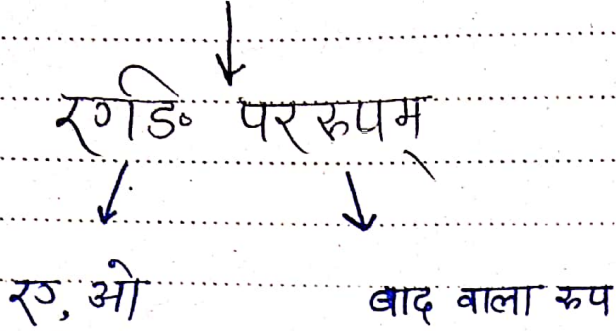 एङि पररुपम्
ए, ओ बाद वाला रुप